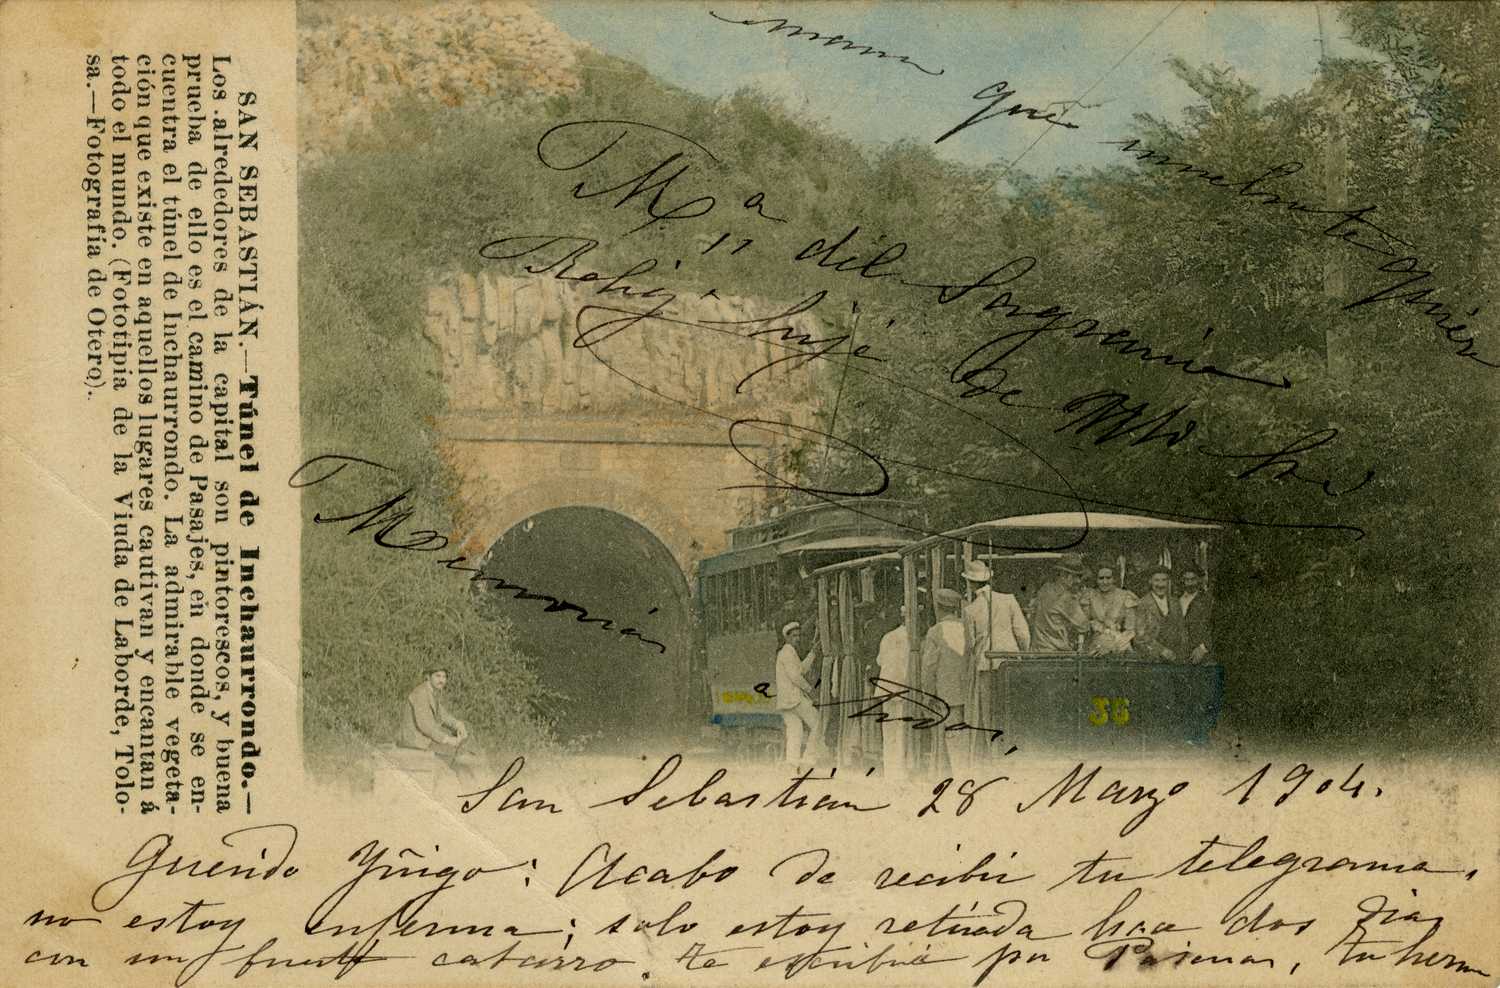 SAN SEBASTIÁN.—Túnel de Inchaurrondo.—
Los alrededores de la capital son pintorescos, y buena
prueba de ello es el camino de Pasajes, en donde se en-
cuentra el túnel de Inchaurrondo. La admirable vegeta-
ción que existe en aquellos lugares cautivan y encantan á
todo el mundo. (Fototipia de la Viuda de Laborde, Tolo-
sa.—Fotografía de Otero).
San Sebastián 28 Marzo 1904.
Querido Yñigo: Acabo de recibir tu telegrama,
no estoy enferma; solo estoy retirada hace dos dias
con un fuerte catarro. te escribiré por Pascuas, tu herm
mana
que
quiere
Mª del
de
Memoria
a todos,
38